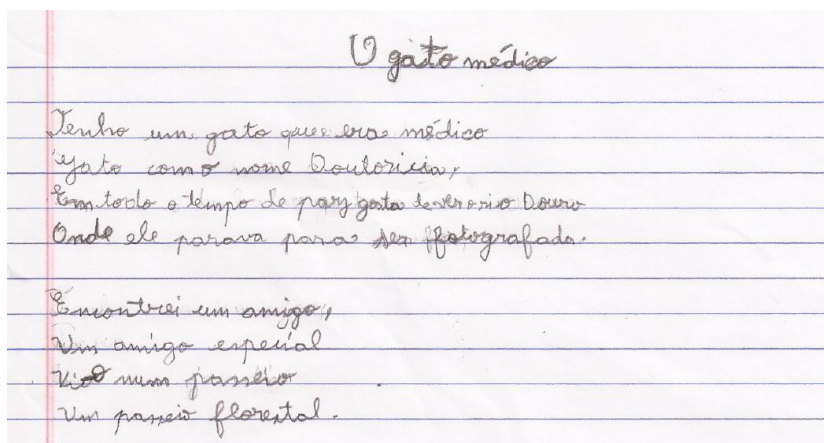 O gato médico
Tenho um gato que era médico
Gato como nome Doutoricia,
Em todo o tempo de gosta de ver o rio Douro
Onde ele parava para ser fotografado.
Encontrei um amigo,
Um amigo especial
Vi-o num passeio
Um passeio florestal.